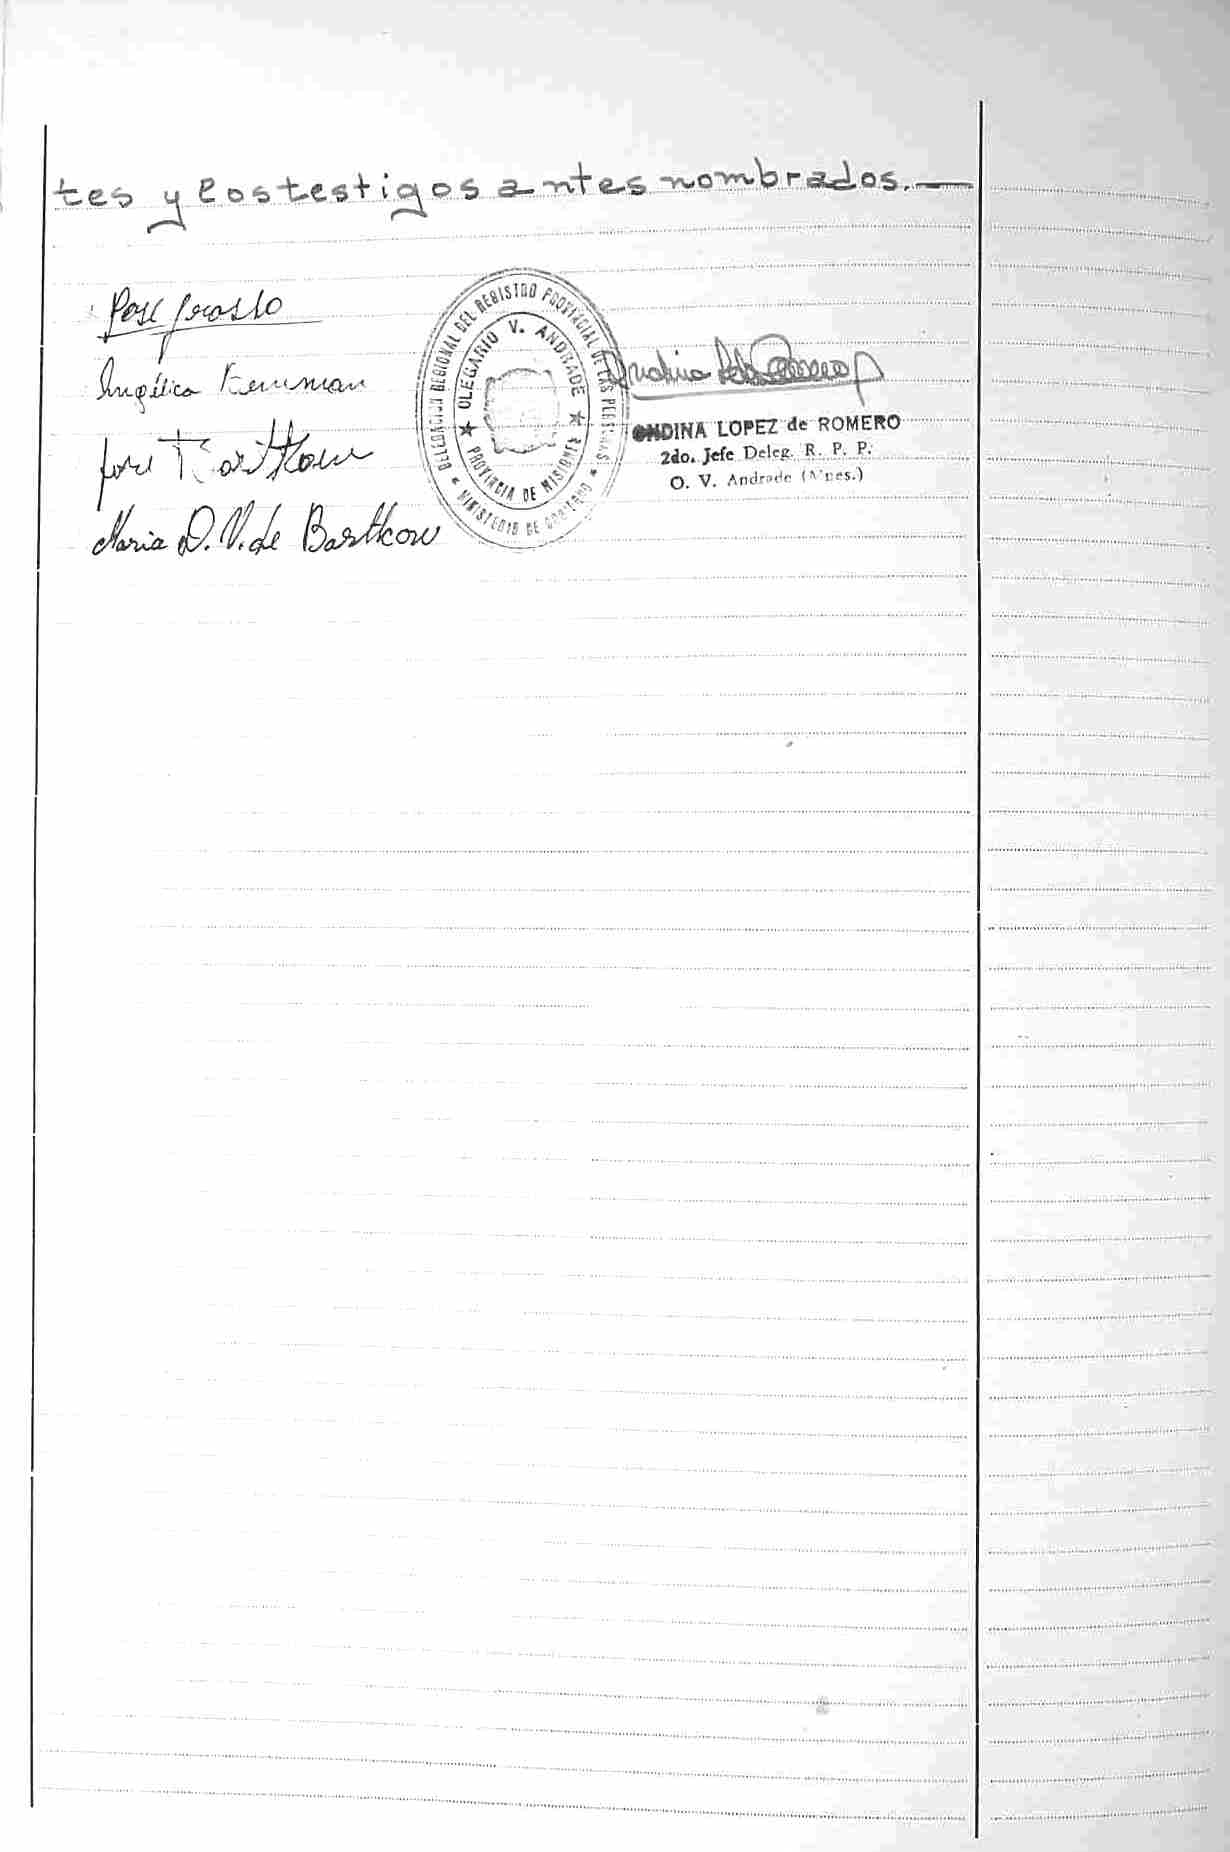 tes y los testigos antes nombrados.—
José Grasso
Angélica
José Bartkow
Maria D. V. de Bartkow
DELEGACION REGIONAL DEL REGISTRO PROVINCIAL DE LAS PERSONAS
★ MINISTERIO DE GOBIERNO ★
OLEGARIO V. ANDRADE
★ PROVINCIA DE MISIONES ★
ONDINA LOPEZ de ROMERO
2do. Jefe Deleg. R. P. P.
O. V. Andrade (Mnes.)